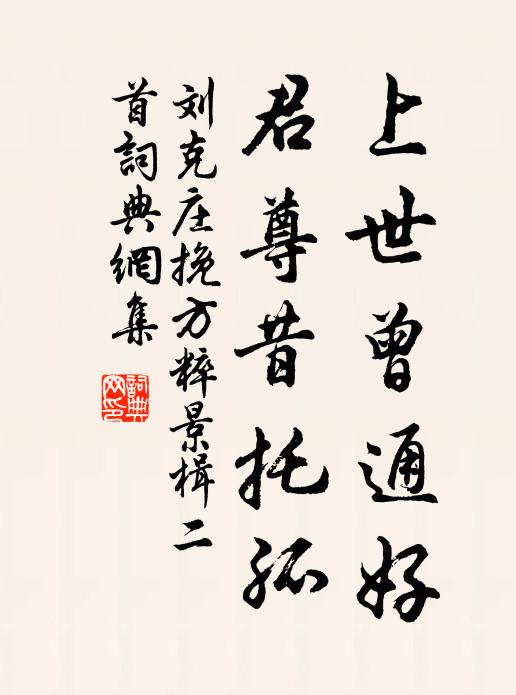 上世曾通好
君尊昔托孤
刘克庄挽方粹景楫二
首詞典網集
詞典網印